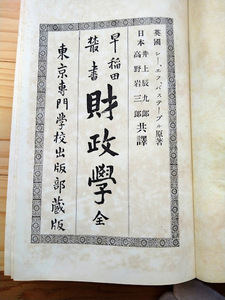 英國 シー、エフ、バステーブル 原著
日本 井上辰九郎 高野岩三郎 共譯
早稲田叢書
財政學 全
東京専門學校出版部蔵版